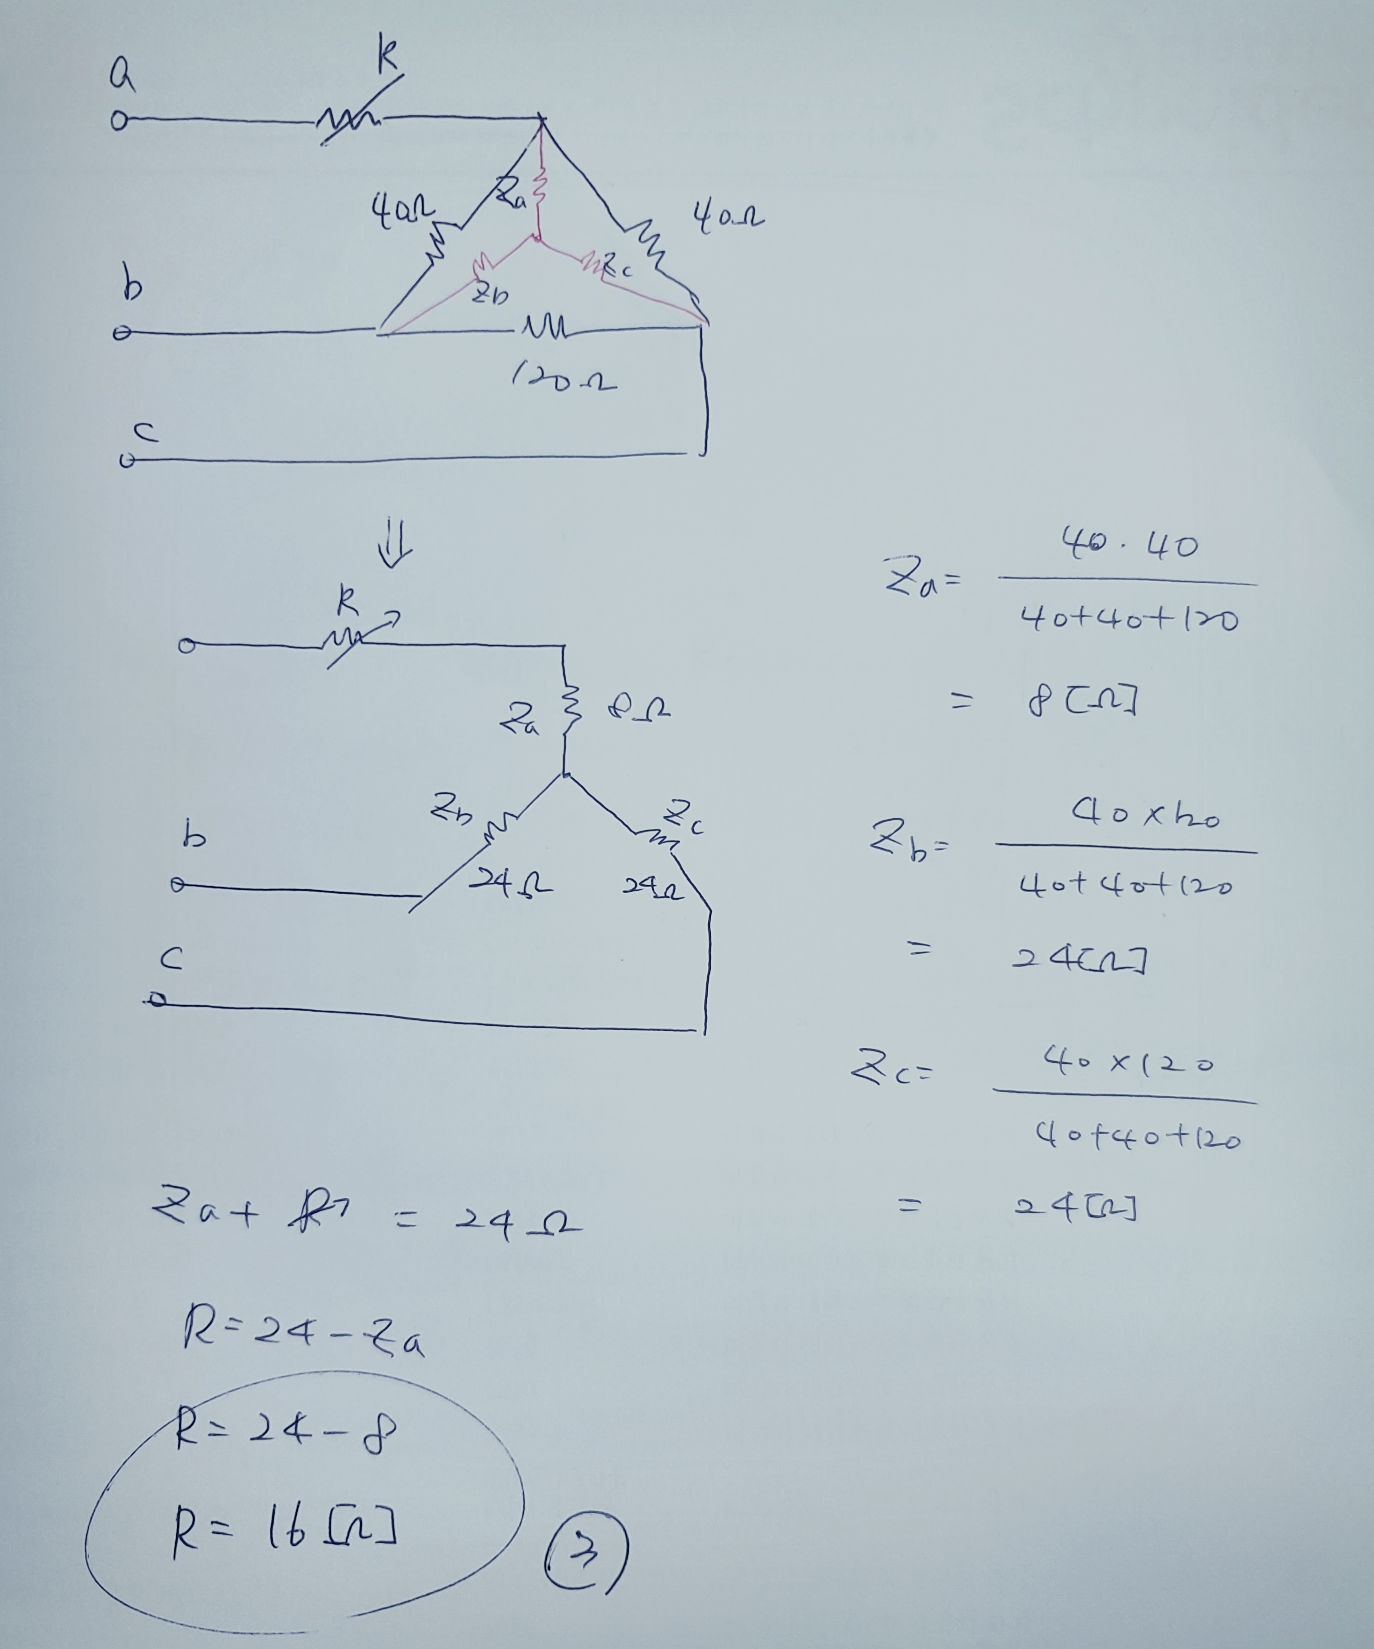 a
R
40Ω
Za
40Ω
b
Zb
Zc
120Ω
c
⇓
R
Za
8Ω
Zb
Zc
b
24Ω
24Ω
c
Za= 40·40
40+40+120
= 8[Ω]
Zb= 40×120
40+40+120
= 24[Ω]
Zc= 40×120
40+40+120
= 24[Ω]
Za+ R = 24Ω
R=24-Za
R=24-8
R=16[Ω]
③